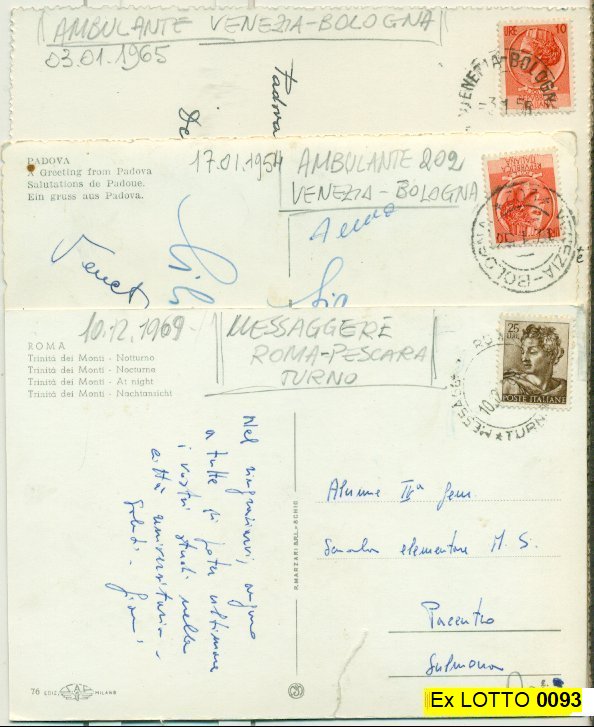 AMBULANTE VENEZIA-BOLOGNA
03.01.1965
Padova
LIRE 10
VENEZIA-BOLOGN
PADOVA
A Greeting from Padova
Salutations de Padoue.
Ein gruss aus Padova.
17.01.1954
AMBULANTE 202
VENEZIA - BOLOGNA
VENEZIA-BOLOGNA
10.12.1969
MESSAGGERE
ROMA-PESCARA
TURNO
ROMA
Trinità dei Monti - Notturno
Trinità dei Monti - Nocturne
Trinità dei Monti - At night
Trinità dei Monti - Nachtansicht
25
POSTE ITALIANE
MESSAGG
TURN
Nel ringraziarvi, auguro
a tutte di poter ultimare
i vostri studi nella
città universitaria -
Alunne IVª
Scuola elementare M. S.
Pacentro
Sulmona
P. MARZARI SRL - SCHIO
76 EDIZ. SAF MILANO
Ex LOTTO 0093